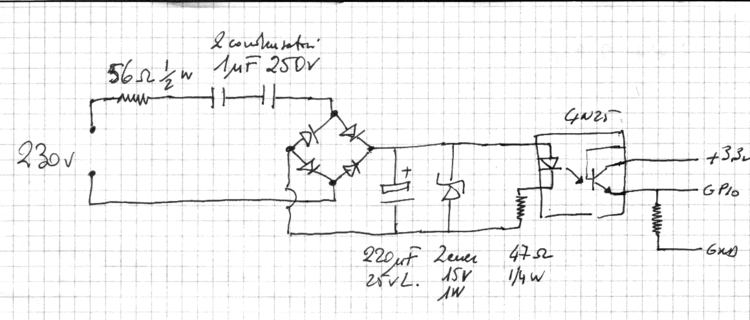 2 condensatori
56Ω ½ W 1µF 250V
4N25
230V
+3.3V
GPIO
+
GND
220µF Zener 47Ω
25VL. 15V 1/4W
1W